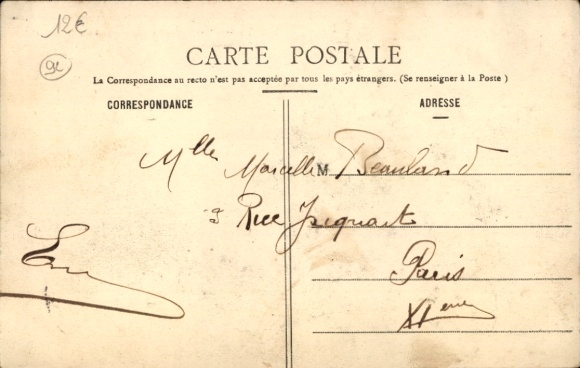 12€
92
CARTE POSTALE
La Correspondance au recto n'est pas acceptée par tous les pays étrangers. (Se renseigner à la Poste)
CORRESPONDANCE
ADRESSE
Mlle Marcelle M
3 Rue
Paris
XIeme